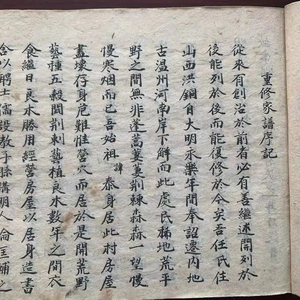 重修家譜序記
從來有創治於前者必有善繼述開列於
後能列於後而能復修於今矣吾任氏住
山西洪銅自大明永樂年間奉詔遷内地
古溫州河南岸下解而此處民稀地荒平
野之間無非蓬蒿蔓荆棘森森一望慢
慢寒烟而已吾始祖諱泰身居此村房屋
盡壞存身危難惟營穴而居於是開荒野
藝種五穀闢荆刺藝植良木數年之間衣
食繼日良木勝用經營房屋以居身造書
舍以躬士儒設教子孫講明人倫